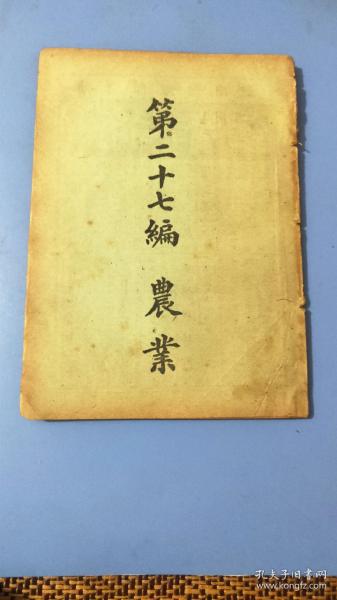 第二十七編 農業
孔夫子旧书网
www.kongfz.com